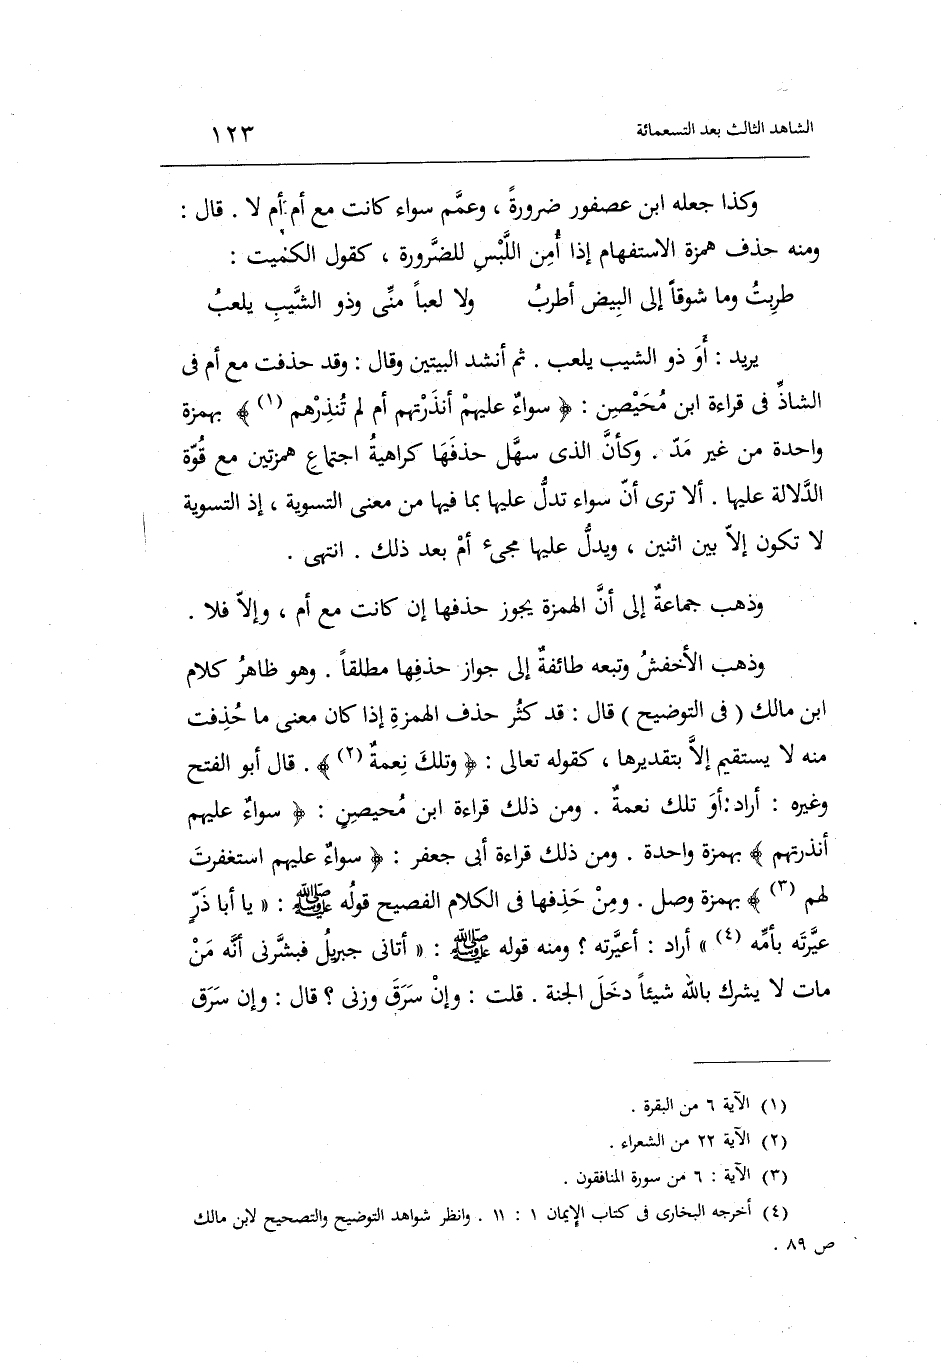 الشاهد الثالث بعد التسعمائة ١٢٣
وكذا جعله ابن عصفور ضرورةً ، وعمَّم سواء كانت مع أم أم لا . قال :
ومنه حذف همزة الاستفهام إذا أُمِن اللَّبْسِ للضَّرورة ، كقول الكميت :
طرِبتُ وما شوقاً إلى البِيض أطربُ ولا لعباً منِّى وذو الشَّيبِ يلعبُ
يريد : أَوَ ذو الشيب يلعب . ثم أنشد البيتين وقال : وقد حذفت مع أم فى
الشاذِّ فى قراءة ابن مُحَيْصِن : ﴿ سواءٌ عليهمْ أنذَرْتهم أم لم تُنذِرْهم (١) ﴾ بهمزة
واحدة من غير مَدّ . وكأنَّ الذى سهَّل حذفَهَا كراهيةُ اجتماع همزتين مع قُوّة
الدَّلالة عليها . ألا ترى أنّ سواء تدلُّ عليها بما فيها من معنى التسوية ، إذ التسوية
لا تكون إلاّ بين اثنين ، ويدلُّ عليها مجىء أمْ بعد ذلك . انتهى .
وذهب جماعةٌ إلى أنَّ الهمزة يجوز حذفها إن كانت مع أم ، وإلاّ فلا .
وذهب الأخفشُ وتبعه طائفةٌ إلى جواز حذفِها مطلقاً . وهو ظاهرُ كلام
ابن مالك ( فى التوضيح ) قال : قد كثُر حذف الهمزةِ إذا كان معنى ما حُذِفت
منه لا يستقيم إلاَّ بتقديرها ، كقوله تعالى : ﴿ وتلكَ نِعمةٌ (٢) ﴾ . قال أبو الفتح
وغيره : أراد : أوَ تلك نعمةٌ . ومن ذلك قراءة ابن مُحيصِنٍ : ﴿ سواءٌ عليهم
أنذرتهم ﴾ بهمزة واحدة . ومن ذلك قراءة أبى جعفر : ﴿ سواءٌ عليهم استغفرتَ
لهم (٣) ﴾ بهمزة وصل . ومِنْ حَذِفها فى الكلام الفصيح قولُه ﷺ : « يا أبا ذَرّ
عيَّرتَه بأمِّه (٤) » أراد : أعيَّرته ؟ ومنه قوله ﷺ : « أتانى جبريلُ فبشَّرنى أنَّه مَنْ
مات لا يشرك بالله شيئاً دخَلَ الجنة . قلت : وإنْ سَرَقَ وزنى ؟ قال : وإن سَرَق
(١) الآية ٦ من البقرة .
(٢) الآية ٢٢ من الشعراء .
(٣) الآية : ٦ من سورة المنافقون .
(٤) أخرجه البخارى فى كتاب الإيمان ١ : ١١ . وانظر شواهد التوضيح والتصحيح لابن مالك
ص ٨٩ .